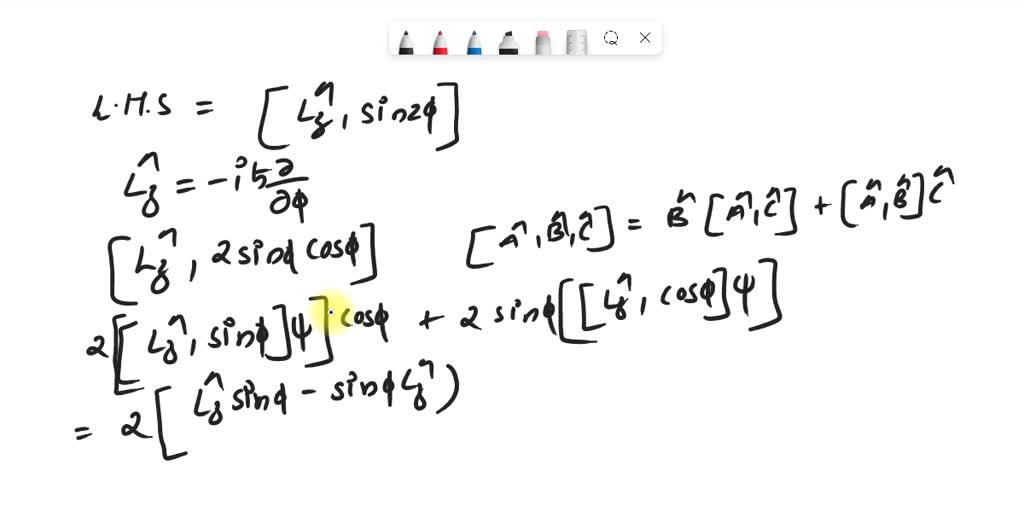 L.H.S = [L̂z, sin2ϕ]
L̂z = -iħ ∂/∂ϕ
[L̂z, 2 sinϕ cosϕ] [Â, B̂, Ĉ] = B̂ [Â, Ĉ] + [Â, B̂] Ĉ
2[[L̂z, sinϕ]ψ] cosϕ + 2 sinϕ [[L̂z, cosϕ]ψ]
= 2[L̂z sinϕ - sinϕ L̂z)